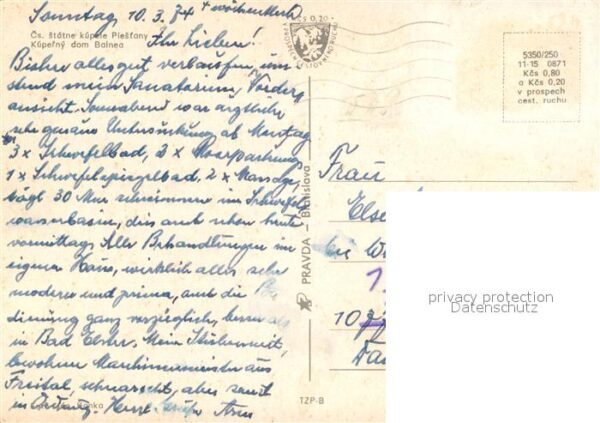 Sonntag 10.3.74
Čs. štátne kúpele Piešťany
Kúpeľný dom Balnea
Ihr Lieben!
Bisher alles gut verlaufen, um
stehend mein Sanatorium, Vorder
ansicht. Sonnabend war ärztliche
sehr genaue Untersuchung ab Montag
3 x Schwefelbad, 3 x Moorpackung
1 x Schwefelspiegelbad, 2 x Massage,
tägl 30 Min schwimmen im Schwefel
wasserbassin, dies auch schon heute
vormittags. Alle Behandlungen im
eigenen Haus, wirklich alles sehr
modern und prima, auch die Be
dienung ganz vorzüglich, besser als
in Bad Elster. Mein Stubenmit
bewohner Maschinenmeister aus
Freital, schnarcht, aber sonst
in Ordnung. Herzl. Grüße
5350/250
11-15 0871
Kčs 0,80
a Kčs 0,20
v prospech
cest. ruchu
PRAVDA - Bratislava
TZP-B
Frau
Else
privacy protection
Datenschutz